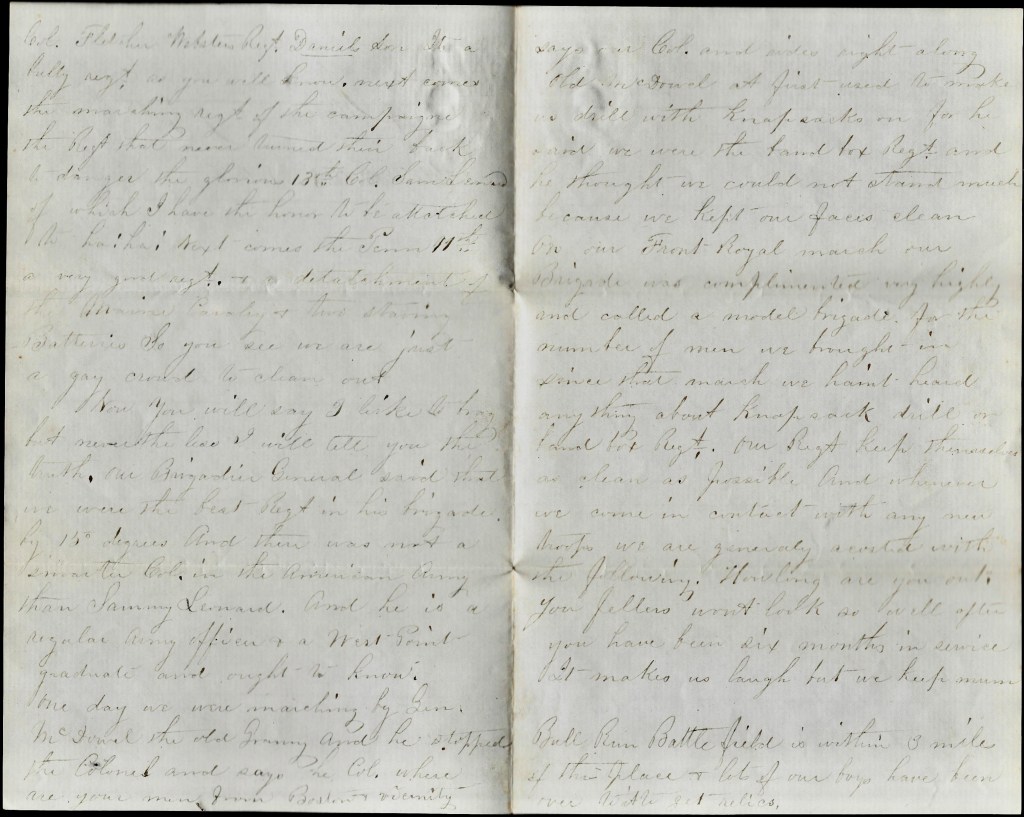 Col. Fletcher Websters Regt. Daniels Son Its a
bully regt. as you will know. next comes
the marching regt of the campaigne
the Regt that never turned their back
to danger the glorious 13th Col. Sam Leonard
of which I have the honor to be attatched
to ha! ha! Next comes the Penn 11th
a very good regt. & a detatchment of
the Maine Cavalry & two
Batteries So you see we are just
a gay crowd to clean out
Now You will say I like to brag
but never the less I will tell you the
truth. Our Brigadier General said that
we were the best Regt in his brigade
by 15 degrees And there was not a
smarter Col. in the American Army
than Sammy Lenard. And he is a
regular Army officer & a West Point
graduate and ought to know.
One day we were marching by Gen.
McDowel the old Granny and he stopped
the Colonel and says he Col. where
are your men from Boston & vicinity
says our Col. and rides right along
Old McDowel at first used to make
us drill with knapsacks on for he
said we were the band box Regt. and
he thought we could not stand much
because we kept our faces clean
On our Front Royal march our
Brigade was complimented very highly
and called a model brigade. for the
number of men we brought in
since that march we haint heard
anything about knapsack drill or
band box Regt. Our Regt keep themselves
as clean as possible And whenever
we come in contact with any new
troops we are generaly acosted with
the following. How long are you out.
You fellers wont look so well after
you have been six months in service
It makes us laugh but we keep mum
Bull Run Battle field is within 3 mile
of this place & lots of our boys have been
over to get relics.